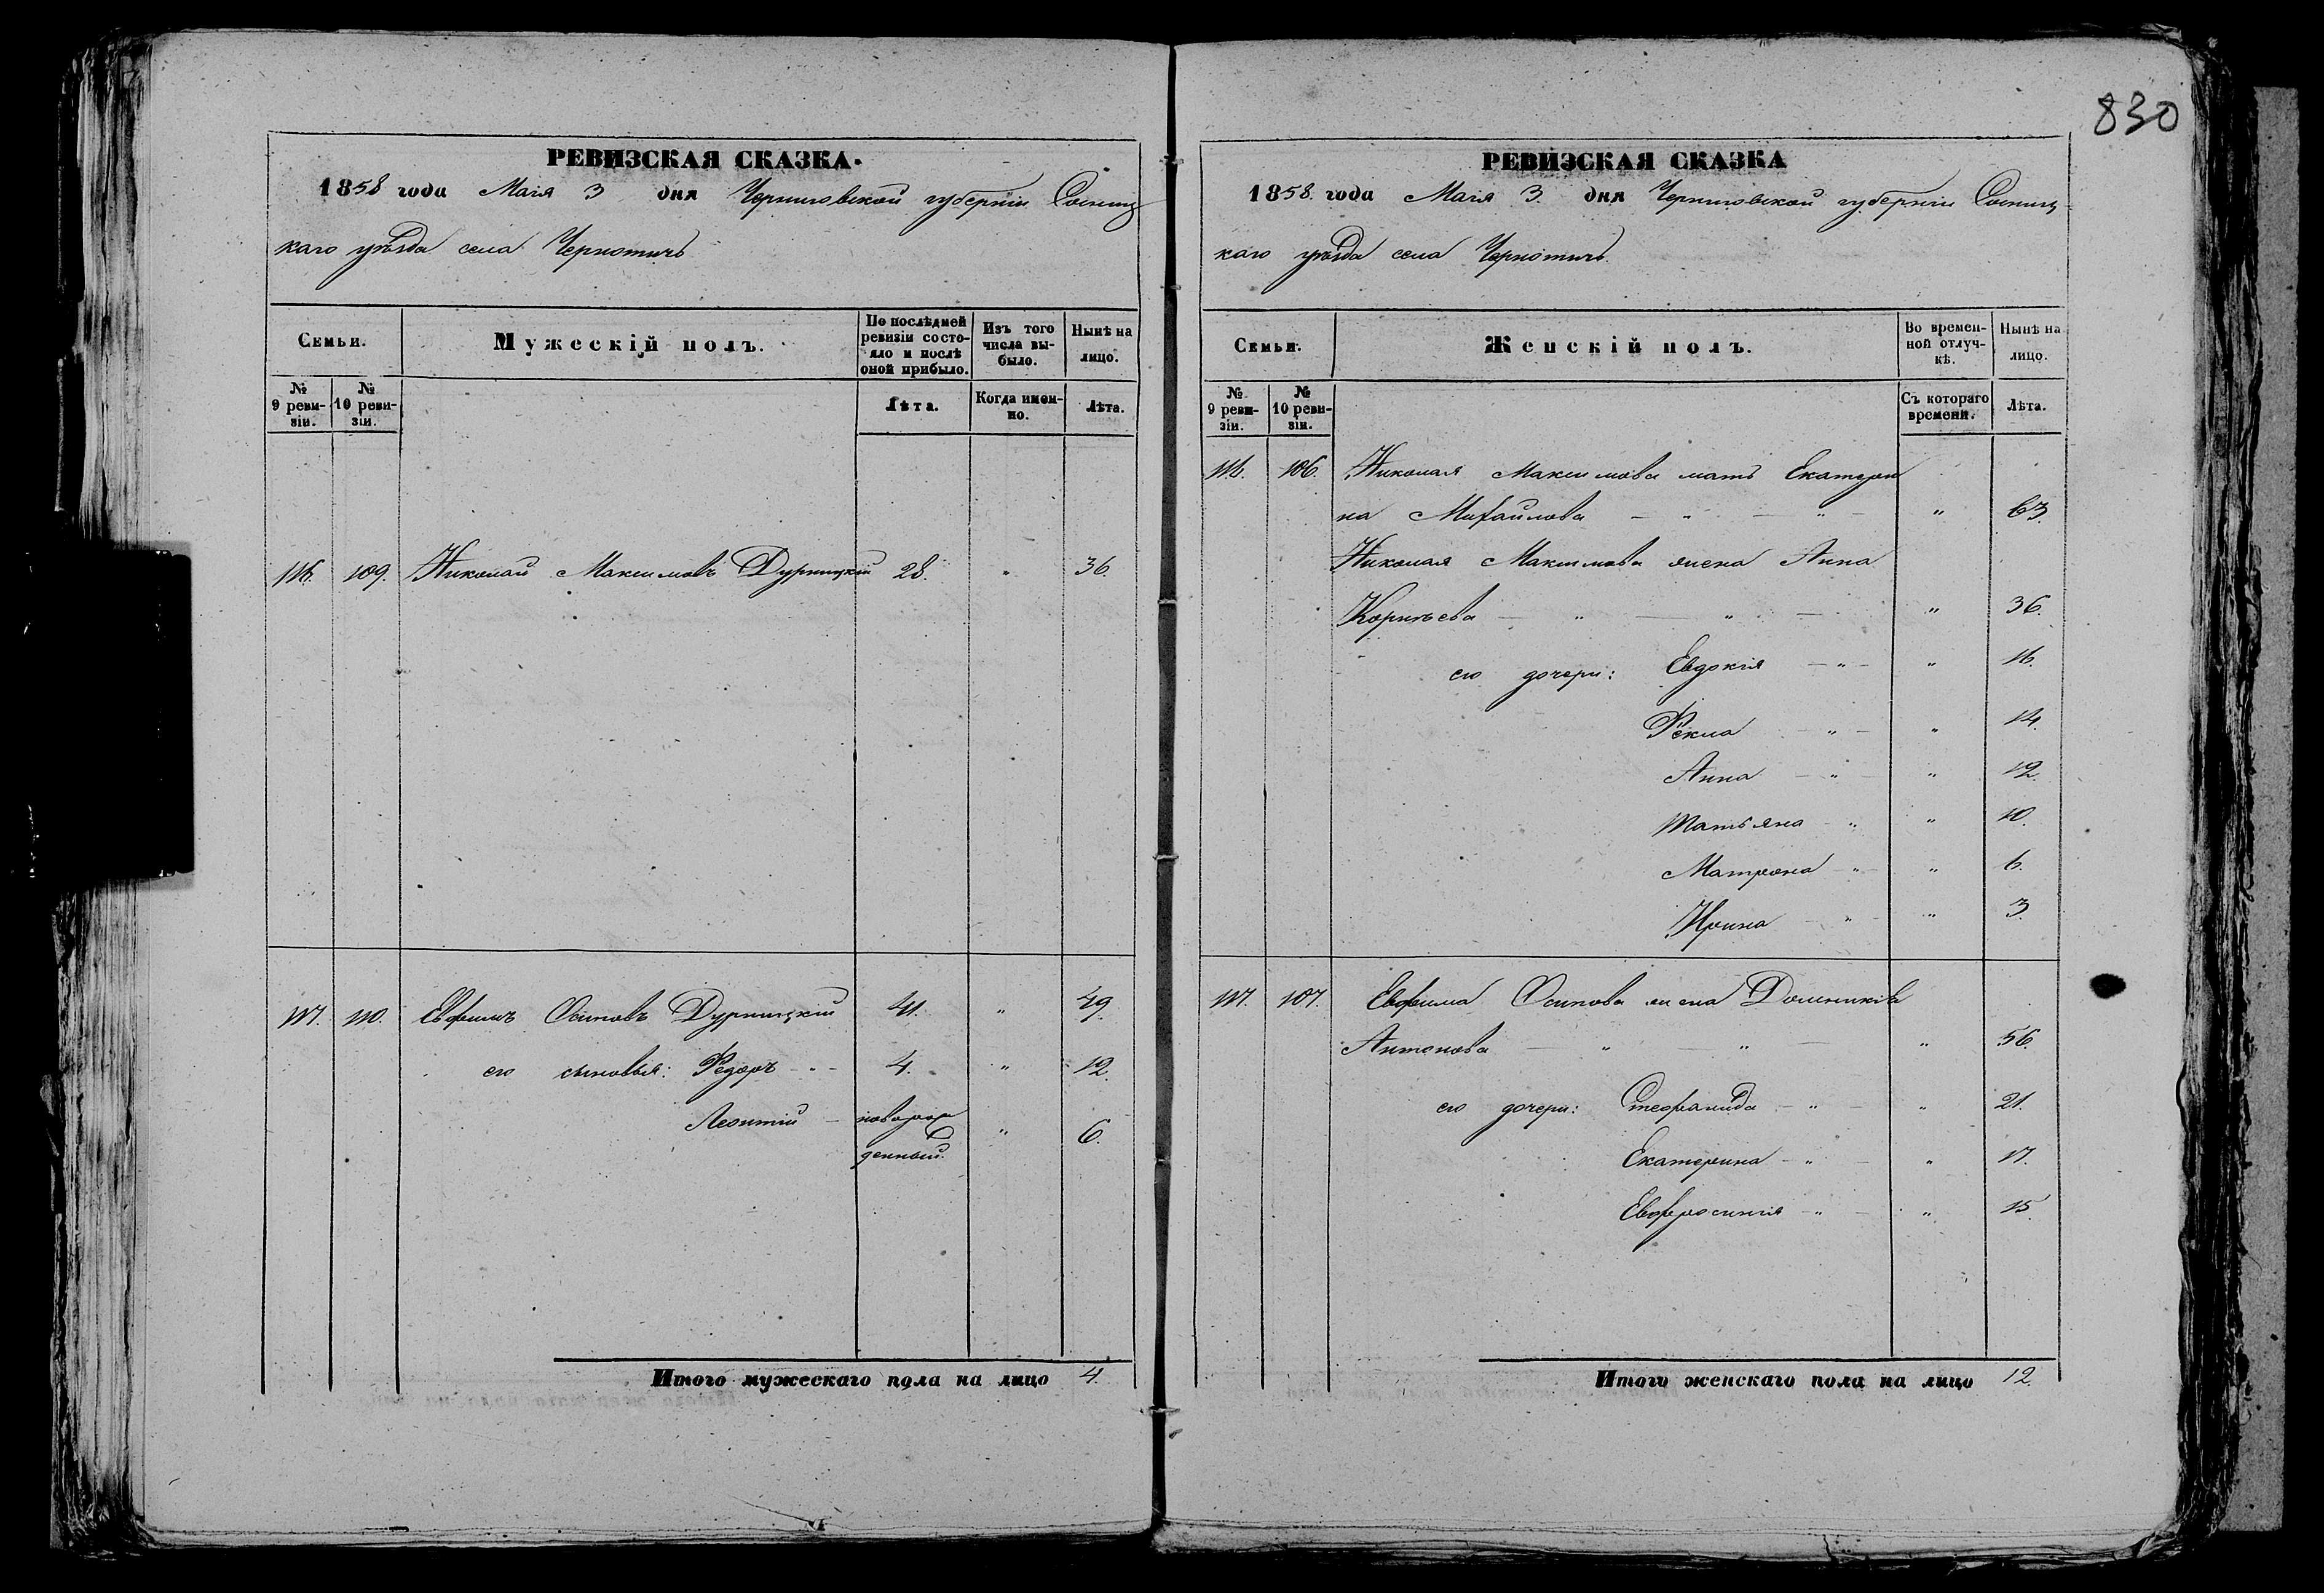 830
РЕВИЗСКАЯ СКАЗКА.
1858 года Маія 3 дня Черниговской губерніи Сосниц
каго уѣзда села Чернотичъ
Семьи.
Мужескій полъ.
По послѣдней ревизіи состояло и послѣ оной прибыло.
Изъ того числа выбыло.
Нынѣ на лицо.
№ 9 ревизіи.
№ 10 ревизіи.
Лѣта.
Когда именно.
Лѣта.
116. 109. Николай Максимовъ Дурницкій 28. " 36.
117. 110. Евфимъ Осиповъ Дурницкій 41. " 49.
его сыновья: Ѳедоръ - " - 4. " 12.
Леонтій - новорож
денный. " 6.
Итого мужескаго пола на лицо 4.
РЕВИЗСКАЯ СКАЗКА
1858. года Маія 3. дня Черниговской губерніи Сосниц
каго уѣзда села Чернотичъ.
Семьи.
Женскій полъ.
Во временной отлучкѣ.
Нынѣ на лицо.
№ 9 ревизіи.
№ 10 ревизіи.
Съ котораго времени.
Лѣта.
116. 106. Николая Максимова мать Екатери
на Михайлова - " - " - " 63.
Николая Максимова жена Анна
Корнѣева - " - " - " 36.
его дочери: Евдокія - " - " 16.
Ѳекла - " - " 14.
Анна - " - " 12.
Татьяна - " " 10.
Матрона - " - " 6.
Ирина - " - " 3.
117. 107. Евфима Осипова жена Домникія
Антонова - " - " - " 56.
его дочери: Стефанида - " - " 21.
Екатерина - " - " 17.
Евфросинія - " - " 15.
Итого женскаго пола на лицо 12.